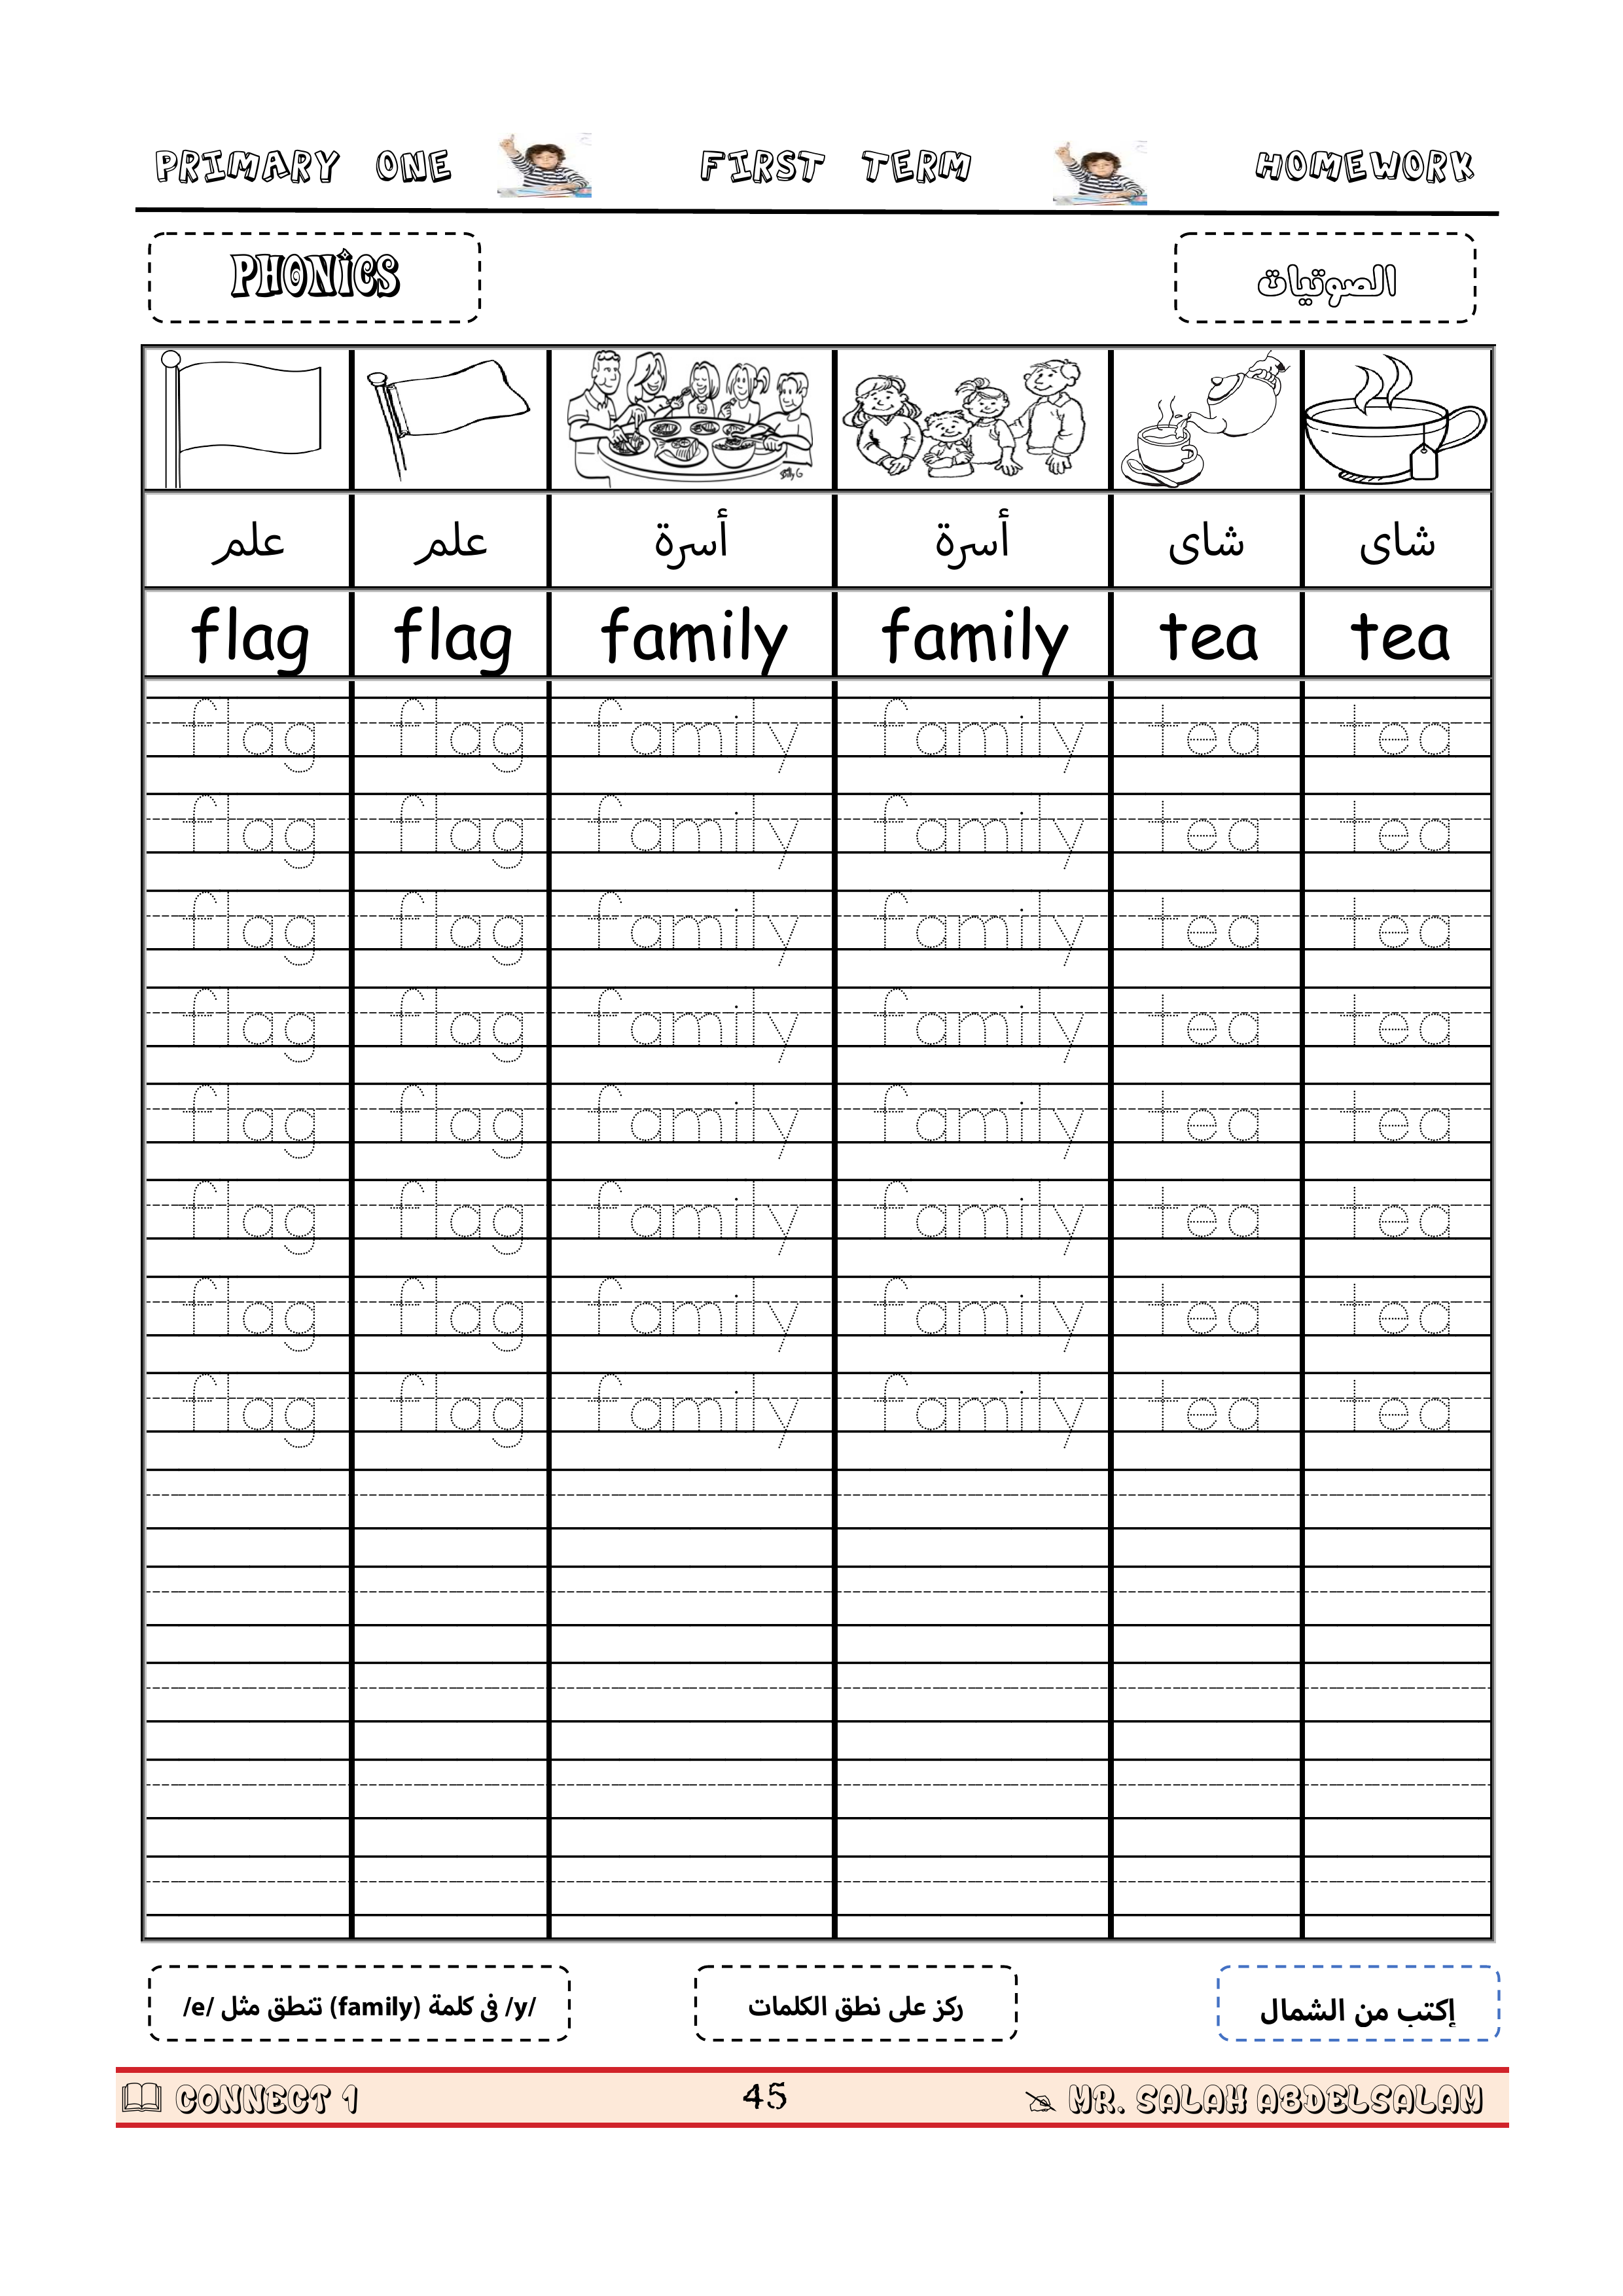 PRIMARY ONE FIRST TERM HOMEWORK
PHONICS الصوتيات
علم علم أسرة أسرة شاى شاى
flag flag family family tea tea
flag flag family family tea tea
flag flag family family tea tea
flag flag family family tea tea
flag flag family family tea tea
flag flag family family tea tea
flag flag family family tea tea
flag flag family family tea tea
flag flag family family tea tea
إكتب من الشمال
ركز على نطق الكلمات
/y/ فى كلمة (family) تنطق مثل /e/
CONNECT 1 45 MR. SALAH ABDELSALAM